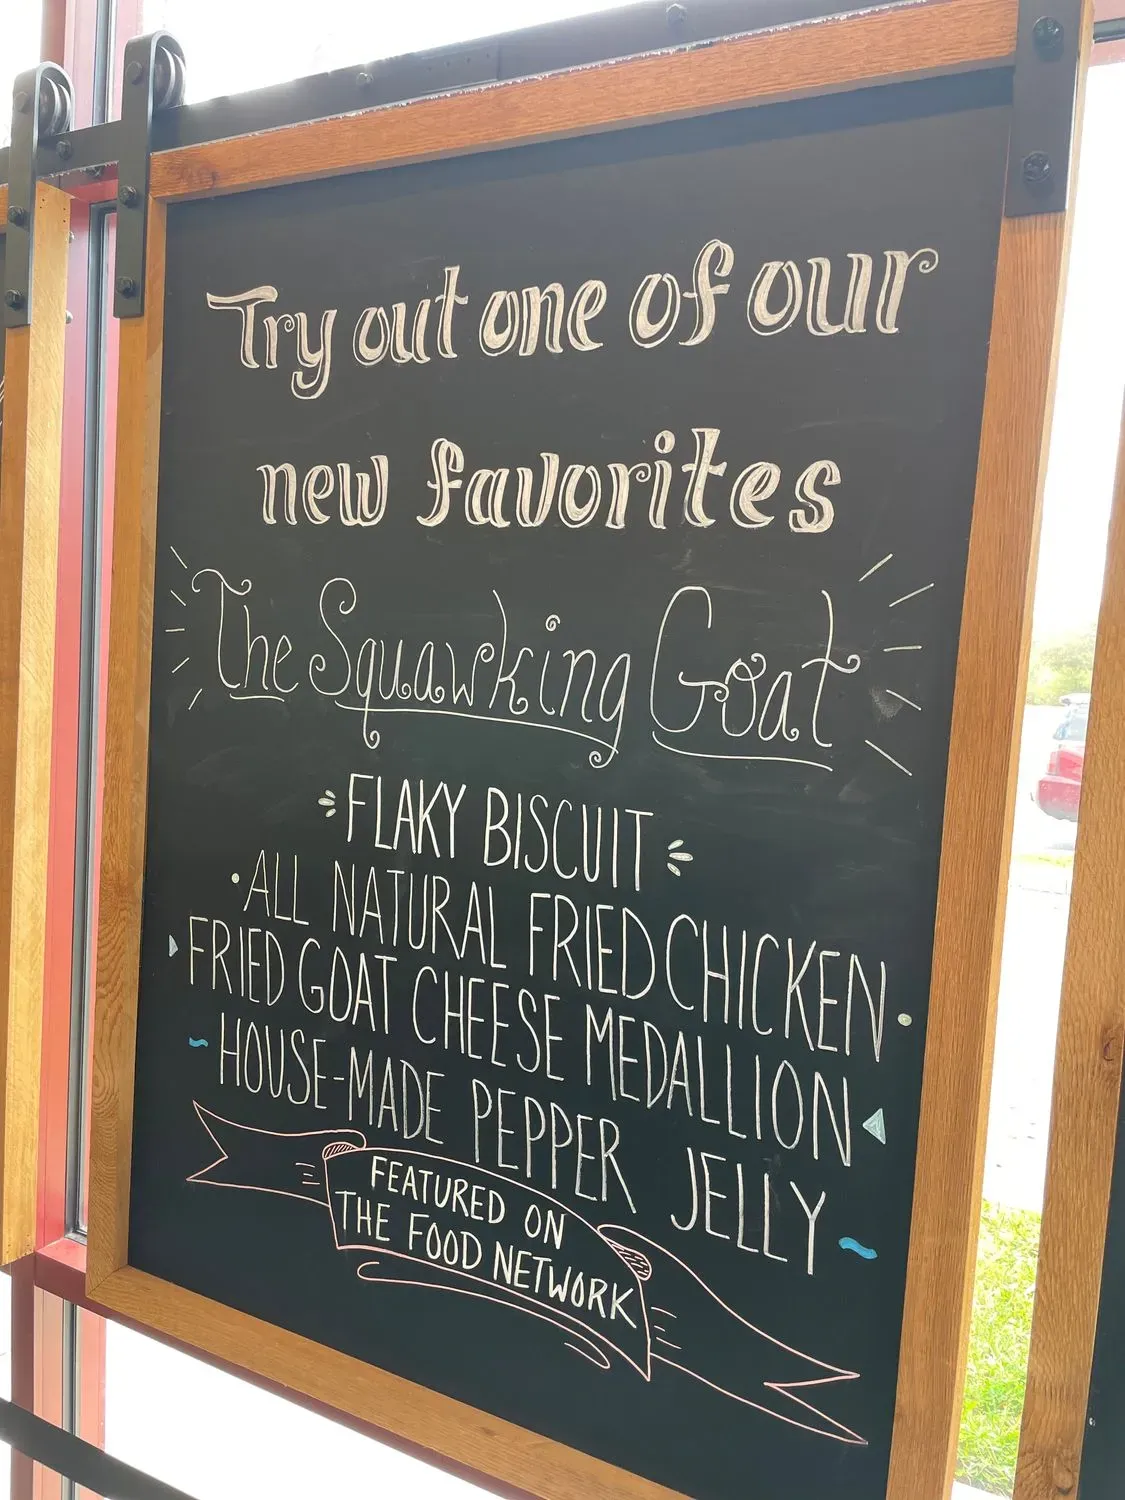 Try out one of our
new favorites
The Squawking Goat
FLAKY BISCUIT
ALL NATURAL FRIED CHICKEN
FRIED GOAT CHEESE MEDALLION
HOUSE-MADE PEPPER JELLY
FEATURED ON
THE FOOD NETWORK